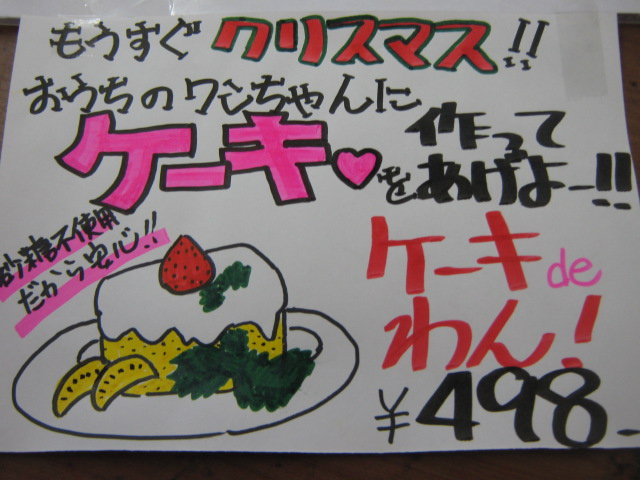 もうすぐクリスマス!!
おうちのワンちゃんに
ケーキ♡を作って
あげよー!!
砂糖不使用
だから安心!!
ケーキde
わん!
¥498-